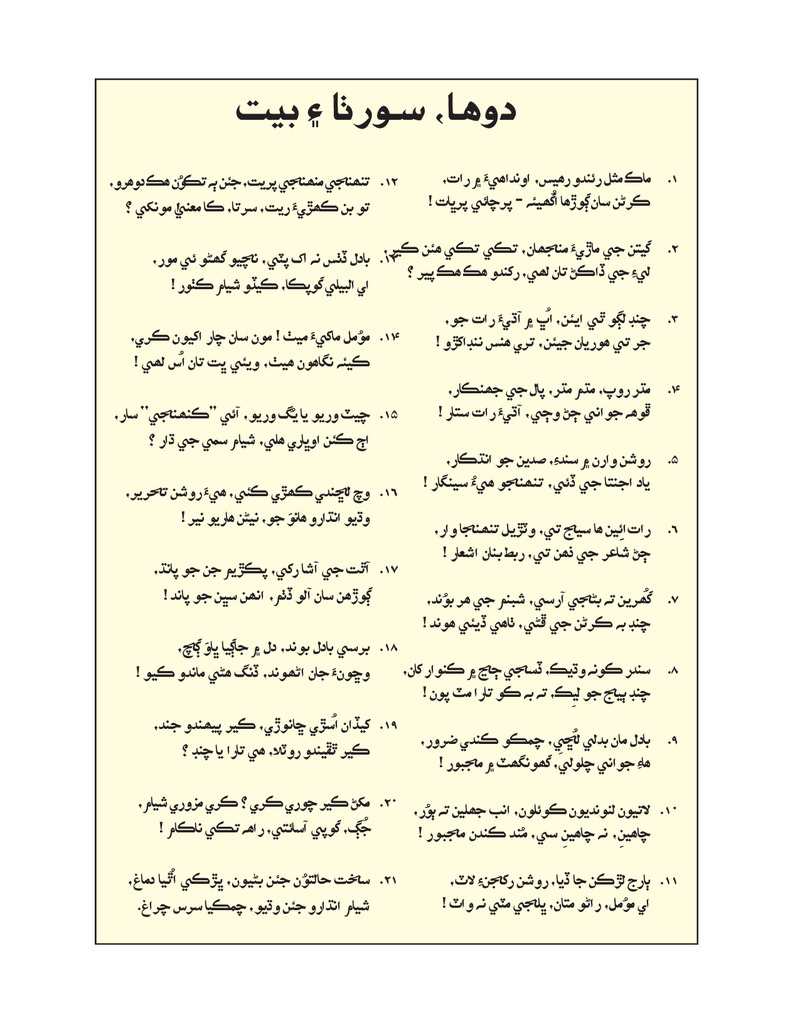 دوها، سورٺا ۽ بيت
۱. ماڪ مثل رئندو رهيس، اونداهيءَ ۾ رات،
ڪرڻن سان ڳوڙها اُگهيئہ - پرچائي پرڀات !
۲. گيتن جي ماڙيءَ منجهان، تڪي تڪي هئن ڪير،
ليءِ جي ڏاڪڻ تان لهي، رکندو هڪ هڪ پير ؟
۳. چنڊ لڳو ٿي ايئن، اُڀ ۾ آڌيءَ رات جو،
جر تي هوريان جيئن، تري هنس ننڊاکڙو !
۴. مٽر روپ، مٽم مٽر، پال جي جهنڪار،
ڦوهہ جواني ڄڻ وڄي، آڌيءَ رات ستار !
۵. روشن وارن ۾ سنڌءِ، صدين جو انڌڪار،
ياد اجنتا جي ڏئي، تنهنجو هيءُ سينگار !
۶. رات اِئين ها سيج تي، وٽڙيل تنهنجا وار،
ڄڻ شاعر جي ذهن تي، ربط بنان اشعار !
۷. گُهرين تہ بڻجي آرسي، شبنم جي هر بوُند،
چنڊ بہ ڪرڻن جي ڦڻي، ٺاهي ڏيئي هوند !
۸. سندر ڪونہ وڌيڪ، ڏسجي ڄڃ ۾ ڪنوار کان،
چنڊ ٻيڄ جو ليِڪ، تہ بہ ڪو تارا مٽ پون !
۹. بادل مان بدلي لُڇيِ، چمڪو ڪندي ضرور،
هاءِ جواني چلولي، گهونگهٽ ۾ مجبور !
۱۰. لاتيون لنونديون ڪوئلون، انب جهلين تہ ٻوُر،
چاهين، نہ چاهين سي، مُند ڪندن مجبور !
۱۱. ٻارج لڙڪن جا ڏيا، روشن رکجنءِ لاٽ،
اي موُمل، راڻو متان، ڀلجي مٽي نہ واٽ !
۱۲. تنهنجي منهنجي پريت، جئن ٻہ تڪوُن هڪ دوهرو،
تو بن ڪهڙيءَ ريت، سرتا، ڪا معنيٰ مونکي ؟
۱۳. بادل ڏٺس نہ اک پٽي، نچيو گهڻو ئي مور،
اي البيلي گوپڪا، ڪيڏو شيام ڪٺور !
۱۴. موُمل ماکيءَ ميٺ ! مون سان چار اکيون ڪري،
ڪيئہ نگاهون هيٺ، ويئي ڀت تان اُس لهي !
۱۵. چيٽ وريو يا يُگ وريو، آئي ”ڪنهنجي“ سار،
اڄ ڪئن اوڀاري هلي، شيام سمي جي ڌار ؟
۱۶. وچ لڇندي ڪهڙي ڪئي، هيءَ روشن تاحرير،
وڌيو انڌارو هانوَ جو، نيڻن هاريو نير !
۱۷. آٿت جي آشا رکي، پڪڙيم جن جو پاند،
ڳوڙهن سان آلو ڏٺم، انهن سڀن جو پاند !
۱۸. برسي بادل بوند، دل ۾ جاڳيا ڀاوَ ڳُڄ،
وڇونءَ جان اڻهوند، ڏنگ هڻي ماندو ڪيو !
۱۹. کيڏان اُسڙي ڇانوڙي، ڪير پيهندو جند،
ڪير ٿڦيندو روٽلا، هي تارا يا چنڊ ؟
۲۰. مکڻ ڪير چوري ڪري ؟ ڪري مزوري شيام،
جُڳ، گوپي آسائتي، راهہ تڪي ناڪام !
۲۱. سخت حالتوُن جئن بڻيون، ڀڙڪي اُٿيا دماغ،
شيام انڌارو جئن وڌيو، چمڪيا سرس چراغ.